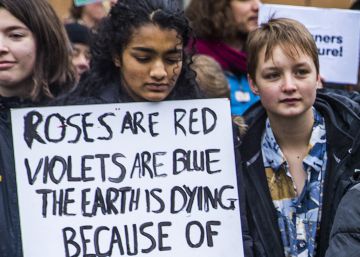 ROSES ARE RED
VIOLETS ARE BLUE
THE EARTH IS DYING
BECAUSE OF